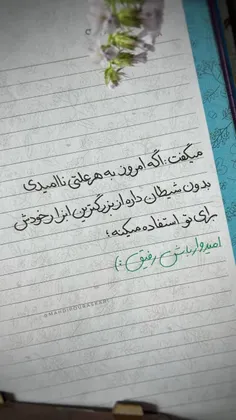 میگفت: اگه امروز به هر علتی ناامیدی
بدون شیطان داره از بزرگترین ابزار خودش
برای تو استفاده میکنه؛
امیدوار باش رفیق :)